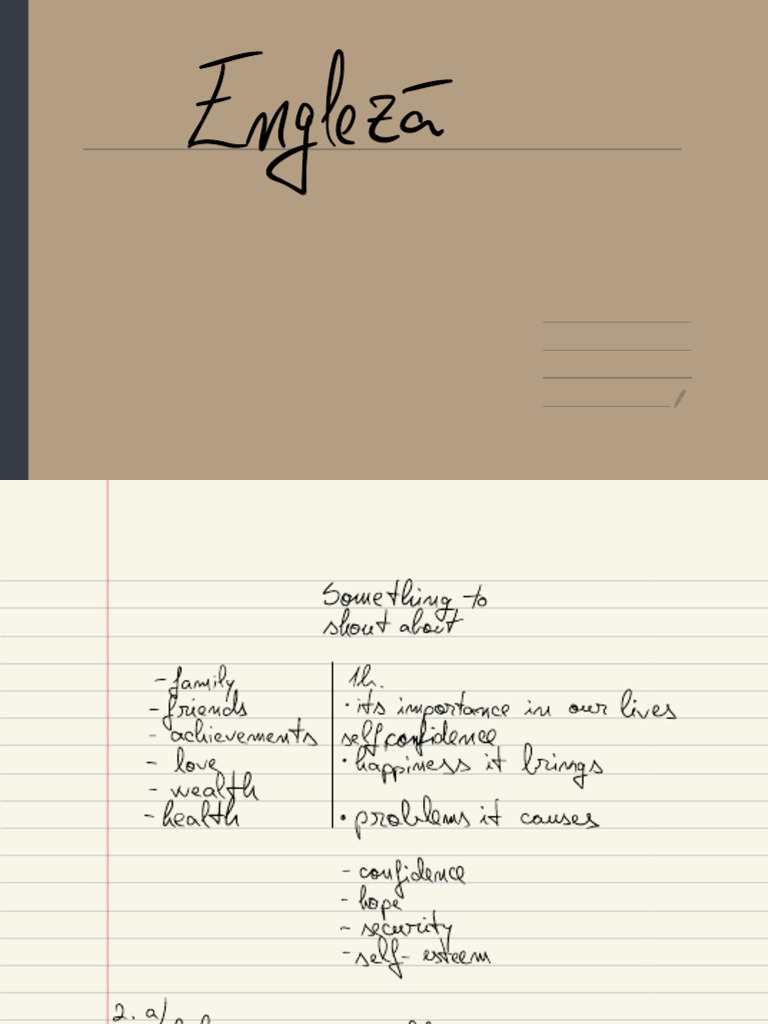 Engleză
Something to
shout about
- family
- friends
- achievements
- love
- wealth
- health
1h.
• its importance in our lives
self confidence
• happiness it brings
• problems it causes
- confidence
- hope
- security
- self-esteem
2. a)